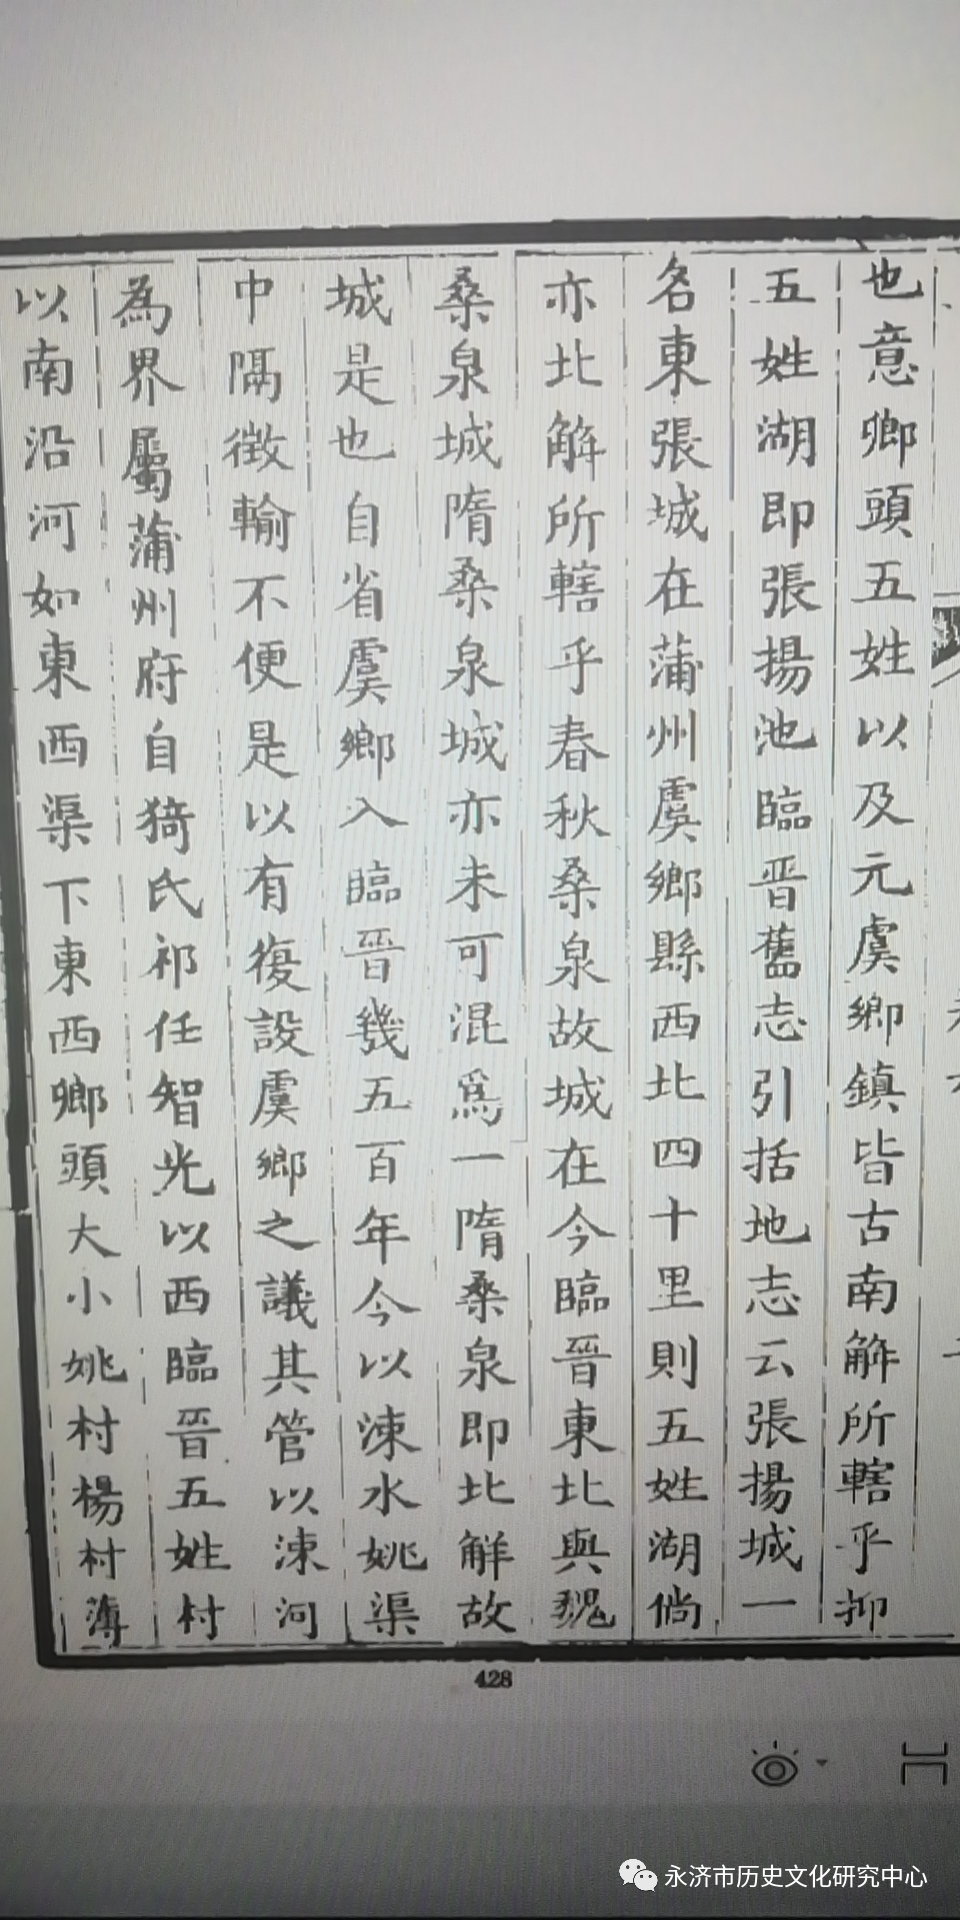 也意鄉頭五姓以及元虞鄉鎮皆古南解所轄乎抑
五姓湖即張揚池臨晋舊志引括地志云張揚城一
名東張城在蒲州虞鄉縣西北四十里則五姓湖倘
亦北解所轄乎春秋桑泉故城在今臨晋東北與魏
桑泉城隋桑泉城亦未可混爲一隋桑泉即北解故
城是也自省虞鄉入臨晉幾五百年今以涑水姚渠
中隔徴輸不便是以有復設虞鄉之議其管以涑河
為界屬蒲州府自猗氏祁任智光以西臨晋五姓村
以南沿河如東西渠下東西鄉頭大小姚村楊村薄
428
永济市历史文化研究中心